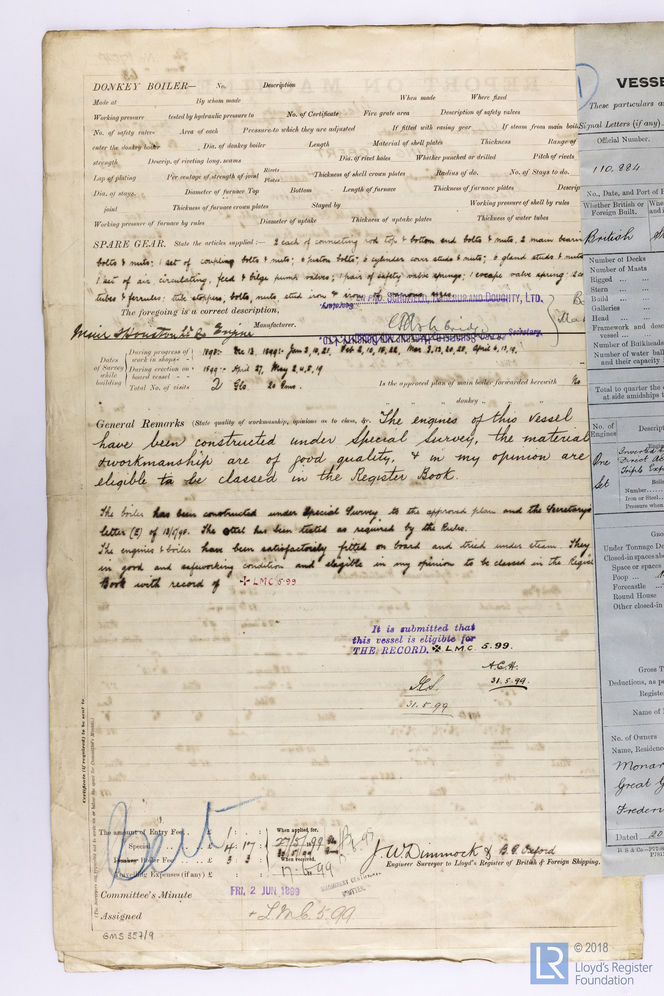 DONKEY BOILER— No. Description
Made at By whom made When made Where fixed
Working pressure tested by hydraulic pressure to No. of Certificate Fire grate area Description of safety valves
No. of safety valves Area of each Pressure to which they are adjusted If fitted with easing gear If steam from main boilers
enter the donkey boiler Dia. of donkey boiler Length Material of shell plates Thickness Range of
strength Descrip. of riveting long. seams Dia. of rivet holes Whether punched or drilled Pitch of rivets
Lap of plating Per centage of strength of joint Rivets Plates Thickness of shell crown plates Radius of do. No. of Stays to do.
Dia. of stays. Diameter of furnace Top Bottom Length of furnace Thickness of furnace plates Descrip
joint Thickness of furnace crown plates Stayed by Working pressure of shell by rules
Working pressure of furnace by rules Diameter of uptake Thickness of uptake plates Thickness of water tubes
SPARE GEAR. State the articles supplied:— 2 each of connecting rod top & bottom end bolts & nuts, 2 main bearing
bolts & nuts; 1 set of coupling bolts & nuts; 6 piston bolts; 6 cylinder cover studs & nuts; 6 gland studs & nuts
1 set of air circulating, feed & bilge pump valves; 1 pair of safety valve springs; 1 escape valve spring;
tubes & ferrules; tube stoppers, bolts, nuts, stud iron & iron of various sizes
The foregoing is a correct description,
Manufacturer. Secretary.
Dates of Survey while building
During progress of work in shops - - 1898: Dec 13, 1899: Jan 3, 10, 21, Feb 2, 10, 16, 22, Mar 3, 13, 20, 28, April 6, 17, 19,
During erection on board vessel - - - 1899: April 27, May 2, 4, 5, 19
Total No. of visits 2 Gls. 20 Gms. Is the approved plan of main boiler forwarded herewith No
" " " donkey " " "
General Remarks (State quality of workmanship, opinions as to class, &c. The engines of this vessel
have been constructed under Special Survey, the material
& workmanship are of good quality, & in my opinion are
eligible to be classed in the Register Book.
The boiler has been constructed under Special Survey to the approved plan and the Secretary's
letter (E) of The steel has been tested as required by the Rules.
The engines & boiler have been satisfactorily fitted on board and tried under steam. They
in good and safe working condition and eligible in my opinion to be classed in the Register
Book with record of ✠ LMC 5.99
It is submitted that
this vessel is eligible for
THE RECORD. ✠ LMC 5.99.
A.C.H.
31.5.99.
31.5.99
Certificate (if required) to be sent to
The amount of Entry Fee . . £ 1 : : When applied for,
Special . . . . £ 4 : 17 : 27/5/99
Donkey Boiler Fee . . . £ 3 : 3 : When received,
Travelling Expenses (if any) £ : : 17.6.99
J. W. Dimmock & B. G. Oxford
Engineer Surveyor to Lloyd's Register of British & Foreign Shipping.
Committee's Minute FRI, 2 JUN 1899
Assigned + L.M.C. 5.99
GMS 357/9
1
VESSE
These particulars a
Signal Letters (if any)
Official Number.
110,884
No., Date, and Port of
Whether British or
Foreign Built.
British
Number of Decks
Number of Masts
Rigged
Stern
Build
Galleries
Head
Framework and des
vessel
Number of Bulkheads
Number of water bal
and their capacity
Total to quarter the
at side amidships t
No. of
Engines
Descript
One
Set
Inverted
Direct
Triple Exp
Number
Iron or Steel
Pressure when
Under Tonnage De
Closed-in spaces ab
Space or spaces
Poop
Forecastle
Round House
Other closed-in
Gross T
Deductions, as p
Registe
Name of
No. of Owners
Name, Residence
Monar
Great G
Freder
Dated 20
LR
© 2018
Lloyd's Register
Foundation